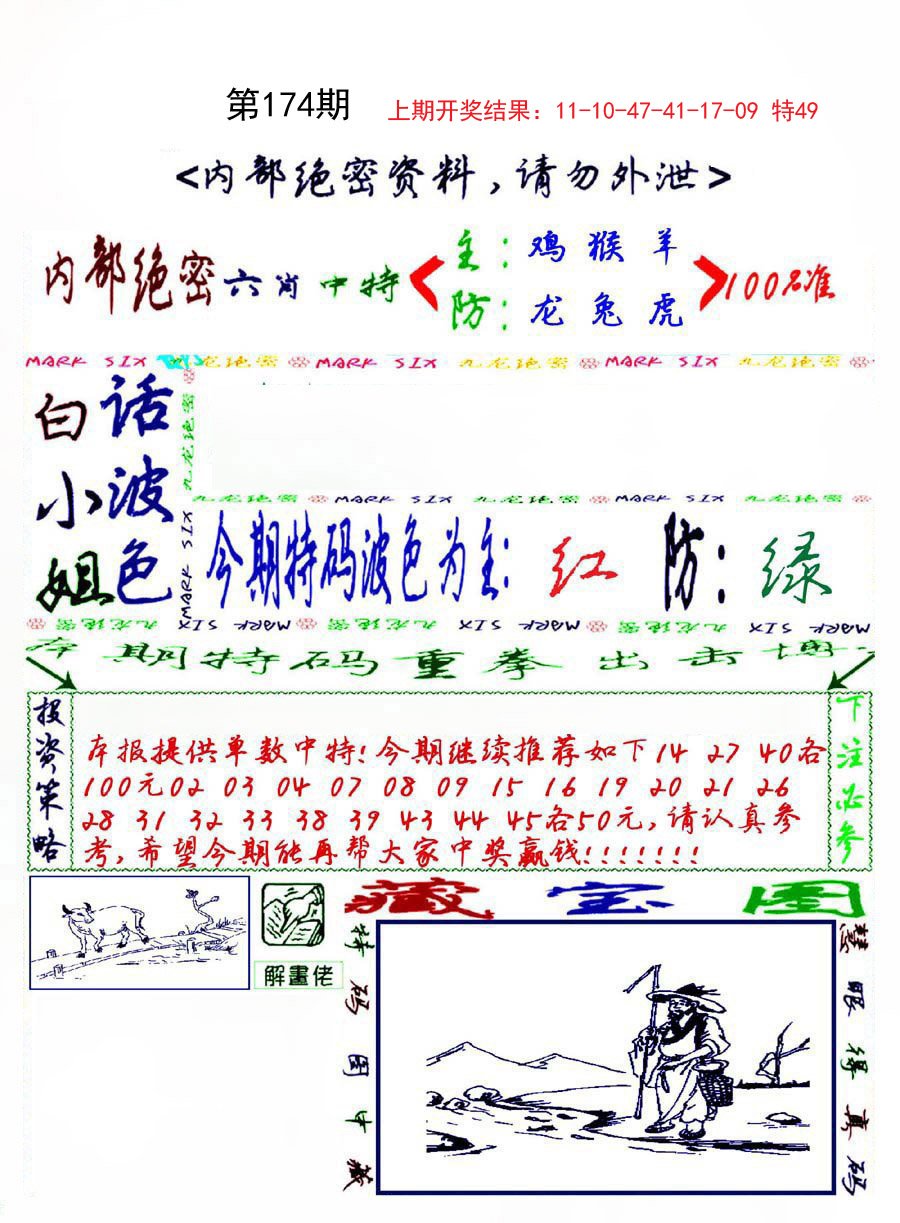 第174期 上期开奖结果：11-10-47-41-17-09 特49
<内部绝密资料，请勿外泄>
内部绝密六肖中特 主：鸡 猴 羊
防：龙 兔 虎
100%准
MARK SIX 九龙绝密 MARK SIX 九龙绝密 MARK SIX 九龙绝密
白小姐
话波色
九龙绝密 MARK SIX
九龙绝密 MARK SIX 九龙绝密 MARK SIX 九龙绝密
今期特码波色为主：红 防：绿
九龙绝密 MARK SIX 九龙绝密 MARK SIX 九龙绝密 MARK SIX
本期特码重拳出击博
投资策略
本报提供单数中特！今期继续推荐如下14 27 40各
100元02 03 04 07 08 09 15 16 19 20 21 26
28 31 32 33 38 39 43 44 45各50元，请认真参
考，希望今期能再帮大家中奖赢钱！！！！！！！
下注必参
藏宝图
解畫佬
特码图中藏
慧眼得真码